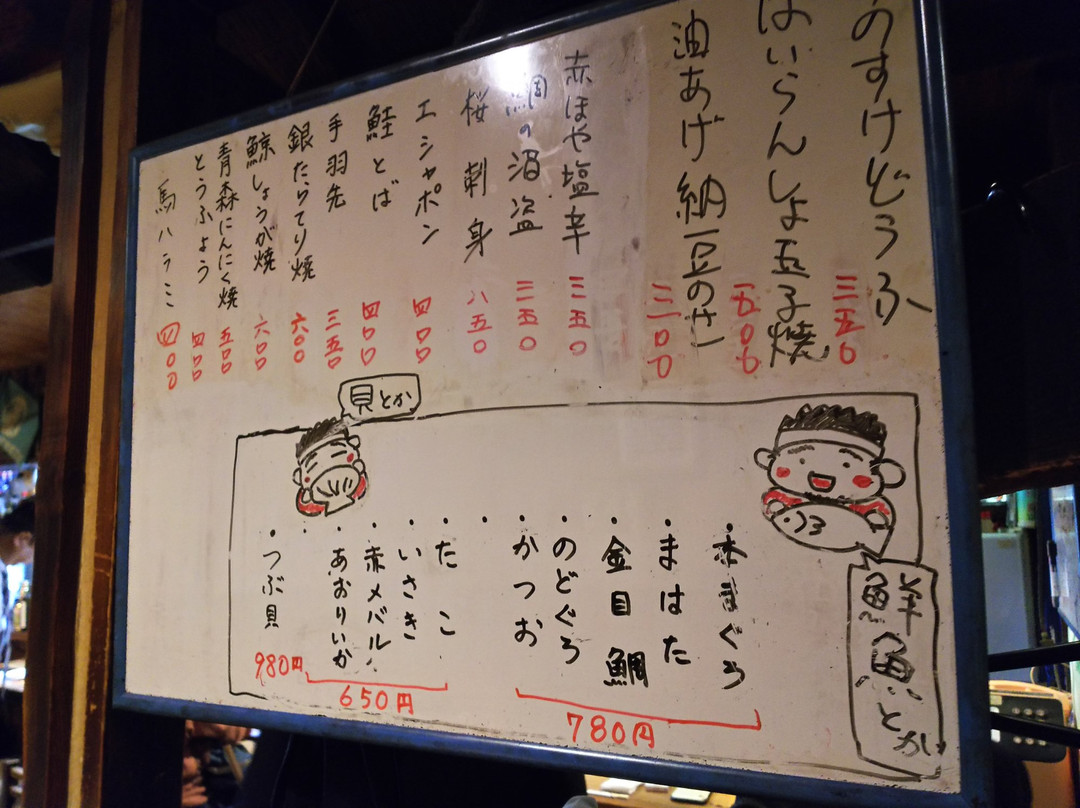 のすけどうふ 三五〇
はいらんしょ玉子焼 五〇〇
油あげ納豆のせ 三〇〇
赤ほや塩辛 三五〇
鯛の酒盗 三五〇
桜刺身 八五〇
エシャポン 四〇〇
鮭とば 四〇〇
手羽先 三五〇
銀たらてり焼 六〇〇
鯨しょうが焼 六〇〇
青森にんにく焼 五〇〇
とうふよう 四〇〇
馬ハラミ 四〇〇
鮮魚とか
・本まぐろ
・まはた
・金目鯛
・のどぐろ
・かつお
780円
貝とか
・たこ
・いさき
・赤メバル
・あおりいか
650円
・つぶ貝
980円